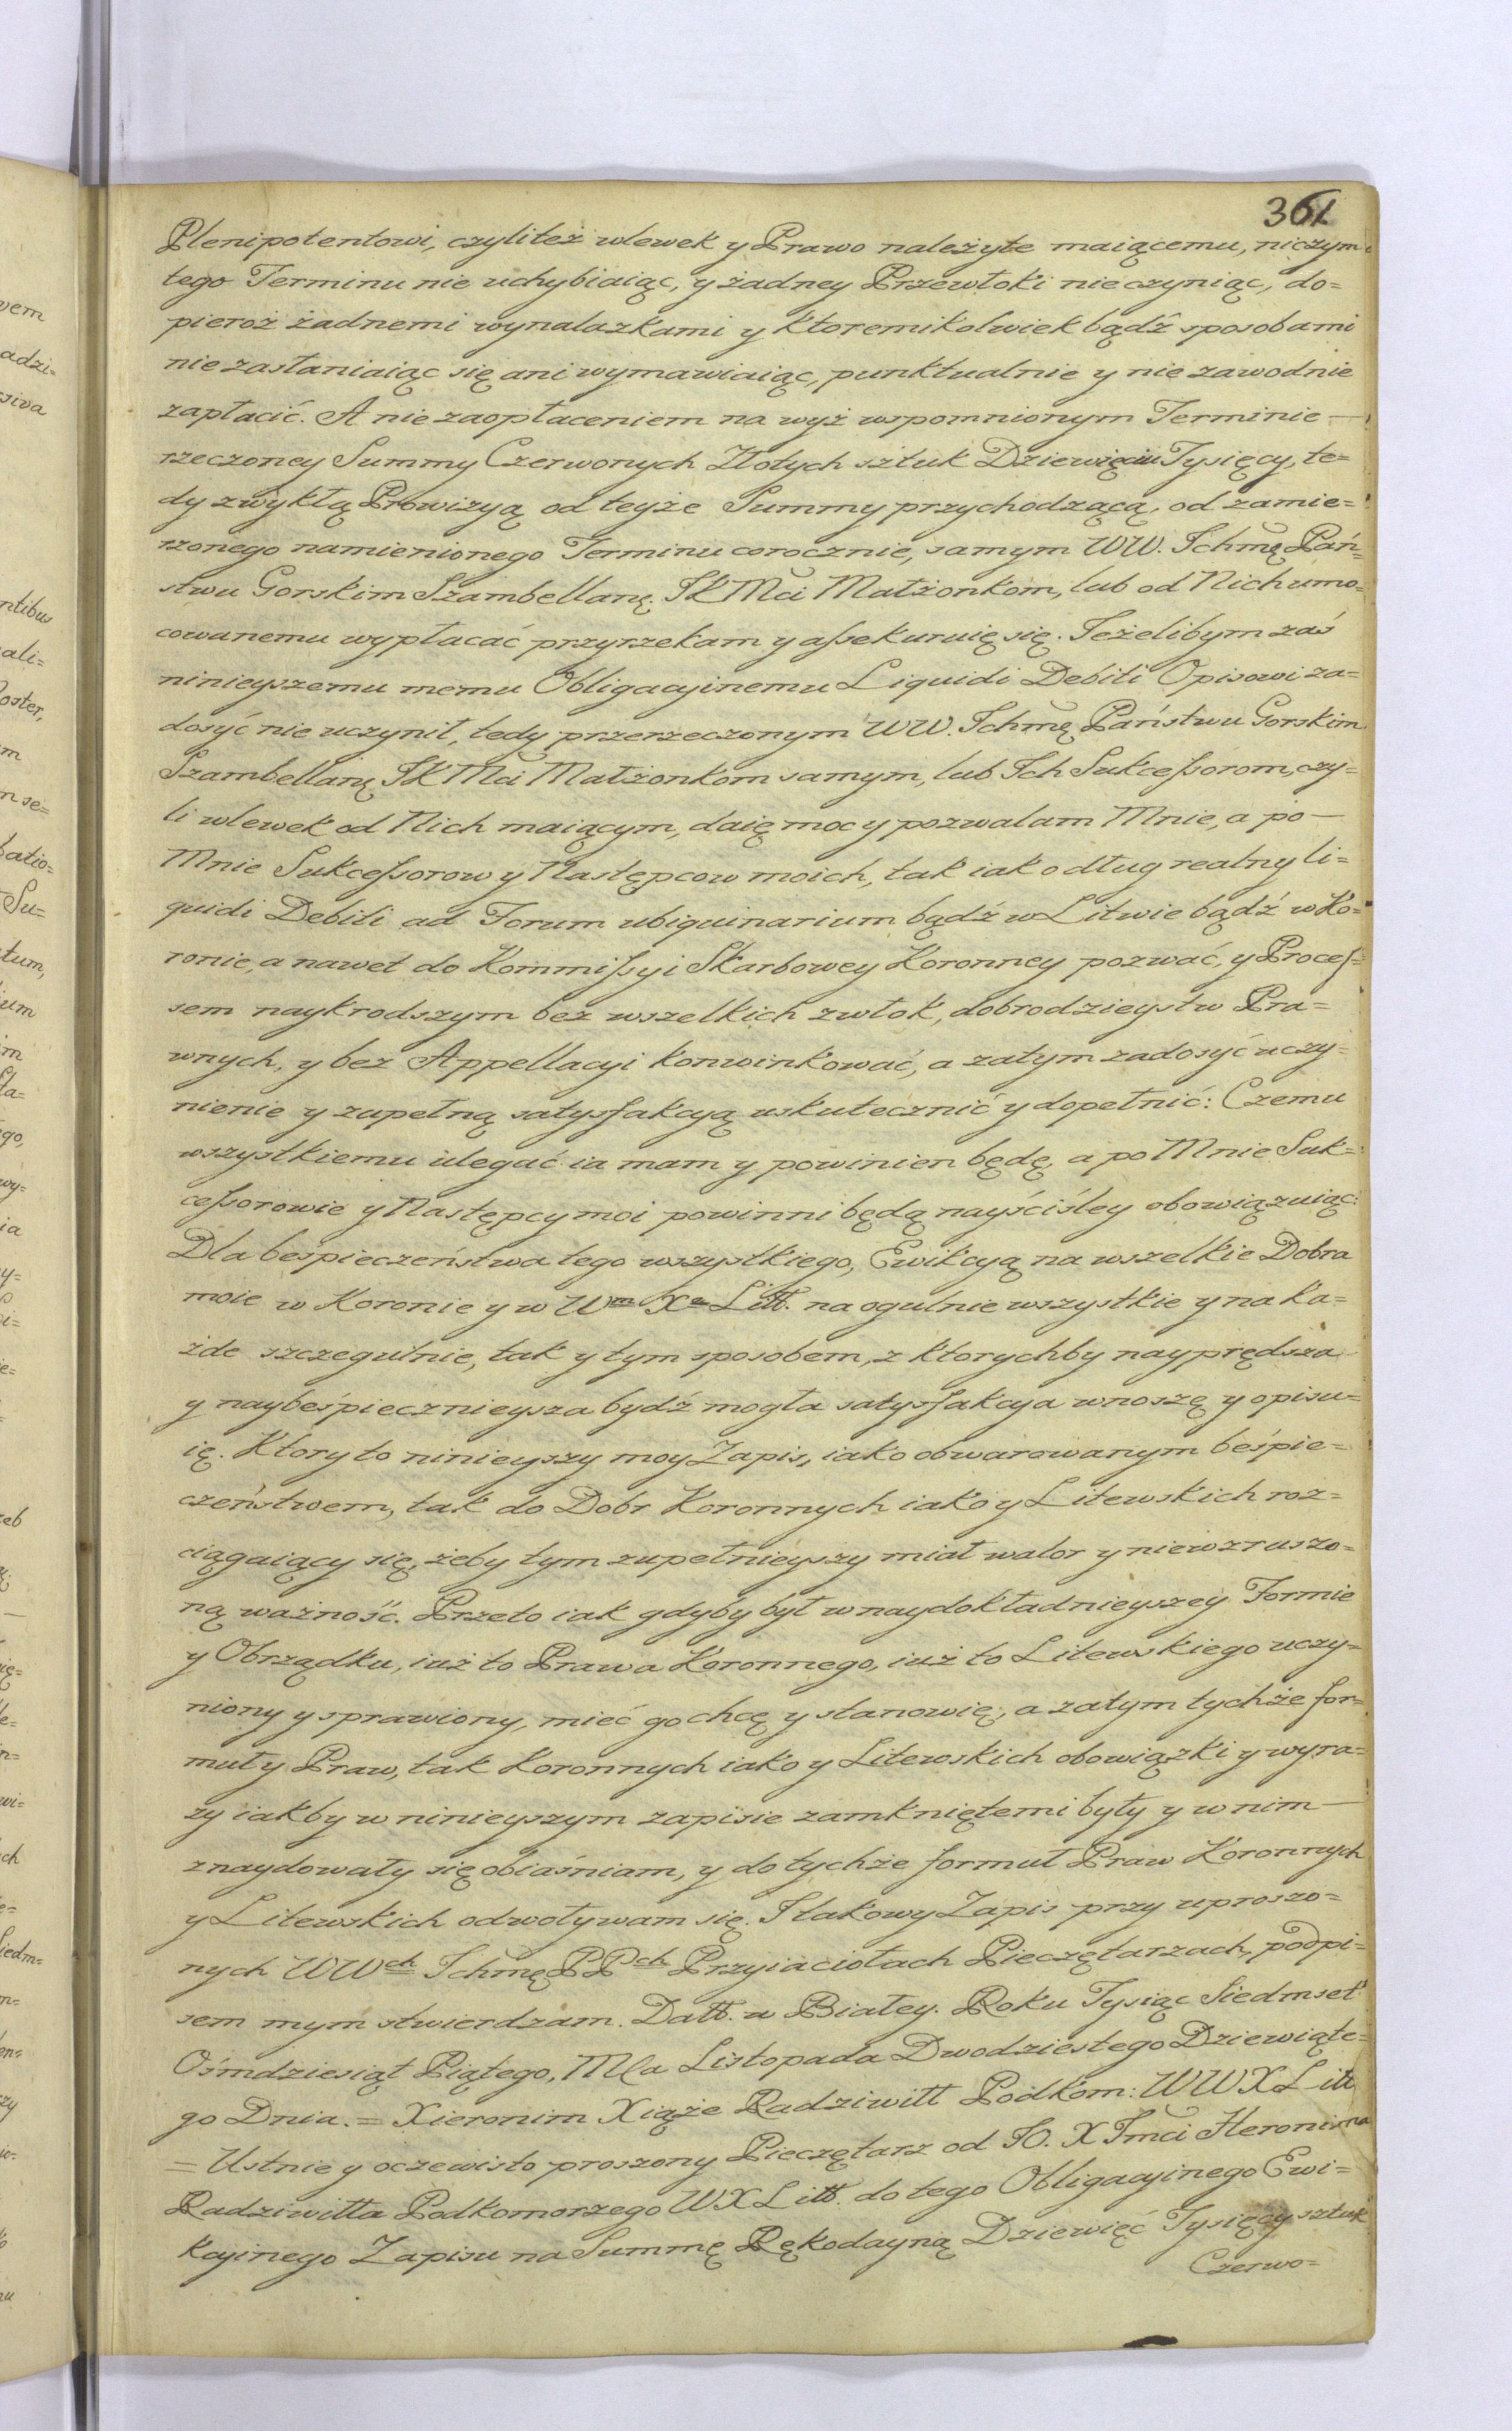 361
Plenipotentowi, czyliteż wlewek y Prawo należyte maiącemu, niczym
tego Terminu nie uchybiaiąc, y żadney Przewłoki nie czyniąc, do=
pieroż żadnemi wynalazkami y ktoremikolwiek bądź sposobami
nie zasłaniaiąc się ani wymawiaiąc, punktualnie y nie zawodnie
zapłacić. A nie zaopłaceniem na wyż wspomnionym Terminie —
rzeczoney Summy Czerwonych Złotych sztuk Dziewięciu Tysięcy, te=
dy zwykłą Prowizyą od teyże Summy przychodzącą, od zamie=
rzonego namienionego Terminu corocznie, samym WW. Ichmę Pań=
stwu Gorskim Szambellanę. JK Mci Małżonkom, lub od Nich umo=
cowanemu wypłacać przyrzekam y assekuruię się. Jeżelibym zaś
ninieyszemu memu Obligacyinemu Liquidi Debiti Opisowi za=
dosyć nie uczynił, tedy przerzeczonym WW. Ichmę Państwu Gorskim
Szambellanę JK Mci Małżonkom samym, lub Ich Sukcessorom, czy=
li wlewek od Nich maiącym, daię moc y pozwalam Mnie, a po —
Mnie Sukcessorow y Następcow moich, tak iak o dług realny li=
quidi Debiti ad Forum ubiquinarium bądź w Litwie bądź w Ko=
ronie, a nawet do Kommissyi Skarbowey Koronney pozwać, y Proces=
sem naykrodszym bez wszelkich zwłok, dobrodzieystw Pra=
wnych, y bez Appellacyi konwinkować, a zatym zadosyć uczy=
nienie y zupełną satysfakcyą uskutecznić y dopełnić: Czemu
wszystkiemu ulegać ia mam y powinien będę, a po Mnie Suk=
cessorowie y Następcy moi powinni będą nayściśley obowiązuiąc:
Dla beśpieczeństwa tego wszystkiego, Ewikcyą na wszelkie Dobra
moie w Koronie y w Wm Xa Litt. na ogulnie wszystkie y na ka=
żde szczegulnie, tak y tym sposobem, z ktorychby nayprędsza
y naybeśpiecznieysza bydź mogła satysfakcya wnoszę y opisu=
ię. Ktory to ninieyszy moy Zapis, iako obwarowanym beśpie=
czeństwem, tak do Dobr Koronnych iako y Litewskich roz=
ciągaiący się, żeby tym zupełnieyszy miał walor y niewzruszo=
ną ważność. Przeto iak gdyby był w naydokładnieyszey Formie
y Obrządku, iuż to Prawa Koronnego, iuż to Litewskiego uczy=
niony y sprawiony, mieć go chcę y stanowię, a zatym tychże for=
muły Praw, tak Koronnych iako y Litewskich obowiązki y wyra=
zy iakby w ninieyszym zapisie zamkniętemi były y w nim —
znaydowały się obiaśniam, y do tychże formuł Praw Koronnych
y Litewskich odwoływam się. I takowy Zapis przy uproszo=
nych WWch Ichmę PPch Przyiaciołach Pieczętarzach, podpi=
sem mym stwierdzam. Datt. w Białey. Roku Tysiąc Siedmset
Ośmdziesiąt Piątego, Mca Listopada Dwodziestego Dziewiąte=
go Dnia. = Xieronim Xiąże Radziwiłł Podkom: WWXLitt
= Ustnie y oczewisto proszony Pieczętarz od JO. X Jmci Heronima
Radziwiłła Podkomorzego WXLitt. do tego Obligacyinego Ewi=
kcyinego Zapisu na Summę Rękodayną Dziewięć Tysięcy sztuk
Czerwo=